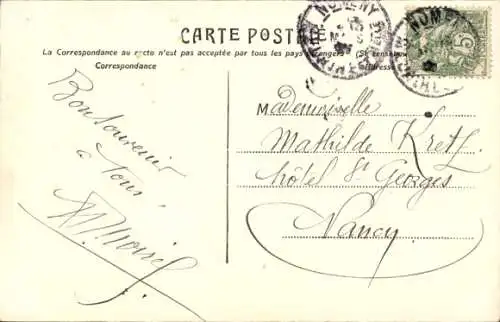 CARTE POSTALE
La Correspondance au recto n'est pas acceptée par tous les pays étrangers (Se renseigner
Correspondance
Adresse
NOMENY
NOMENY
MEURTHE
5
Bon souvenir
à tous,
Mademoiselle
Mathilde Kretz
hôtel St Georges
Nancy